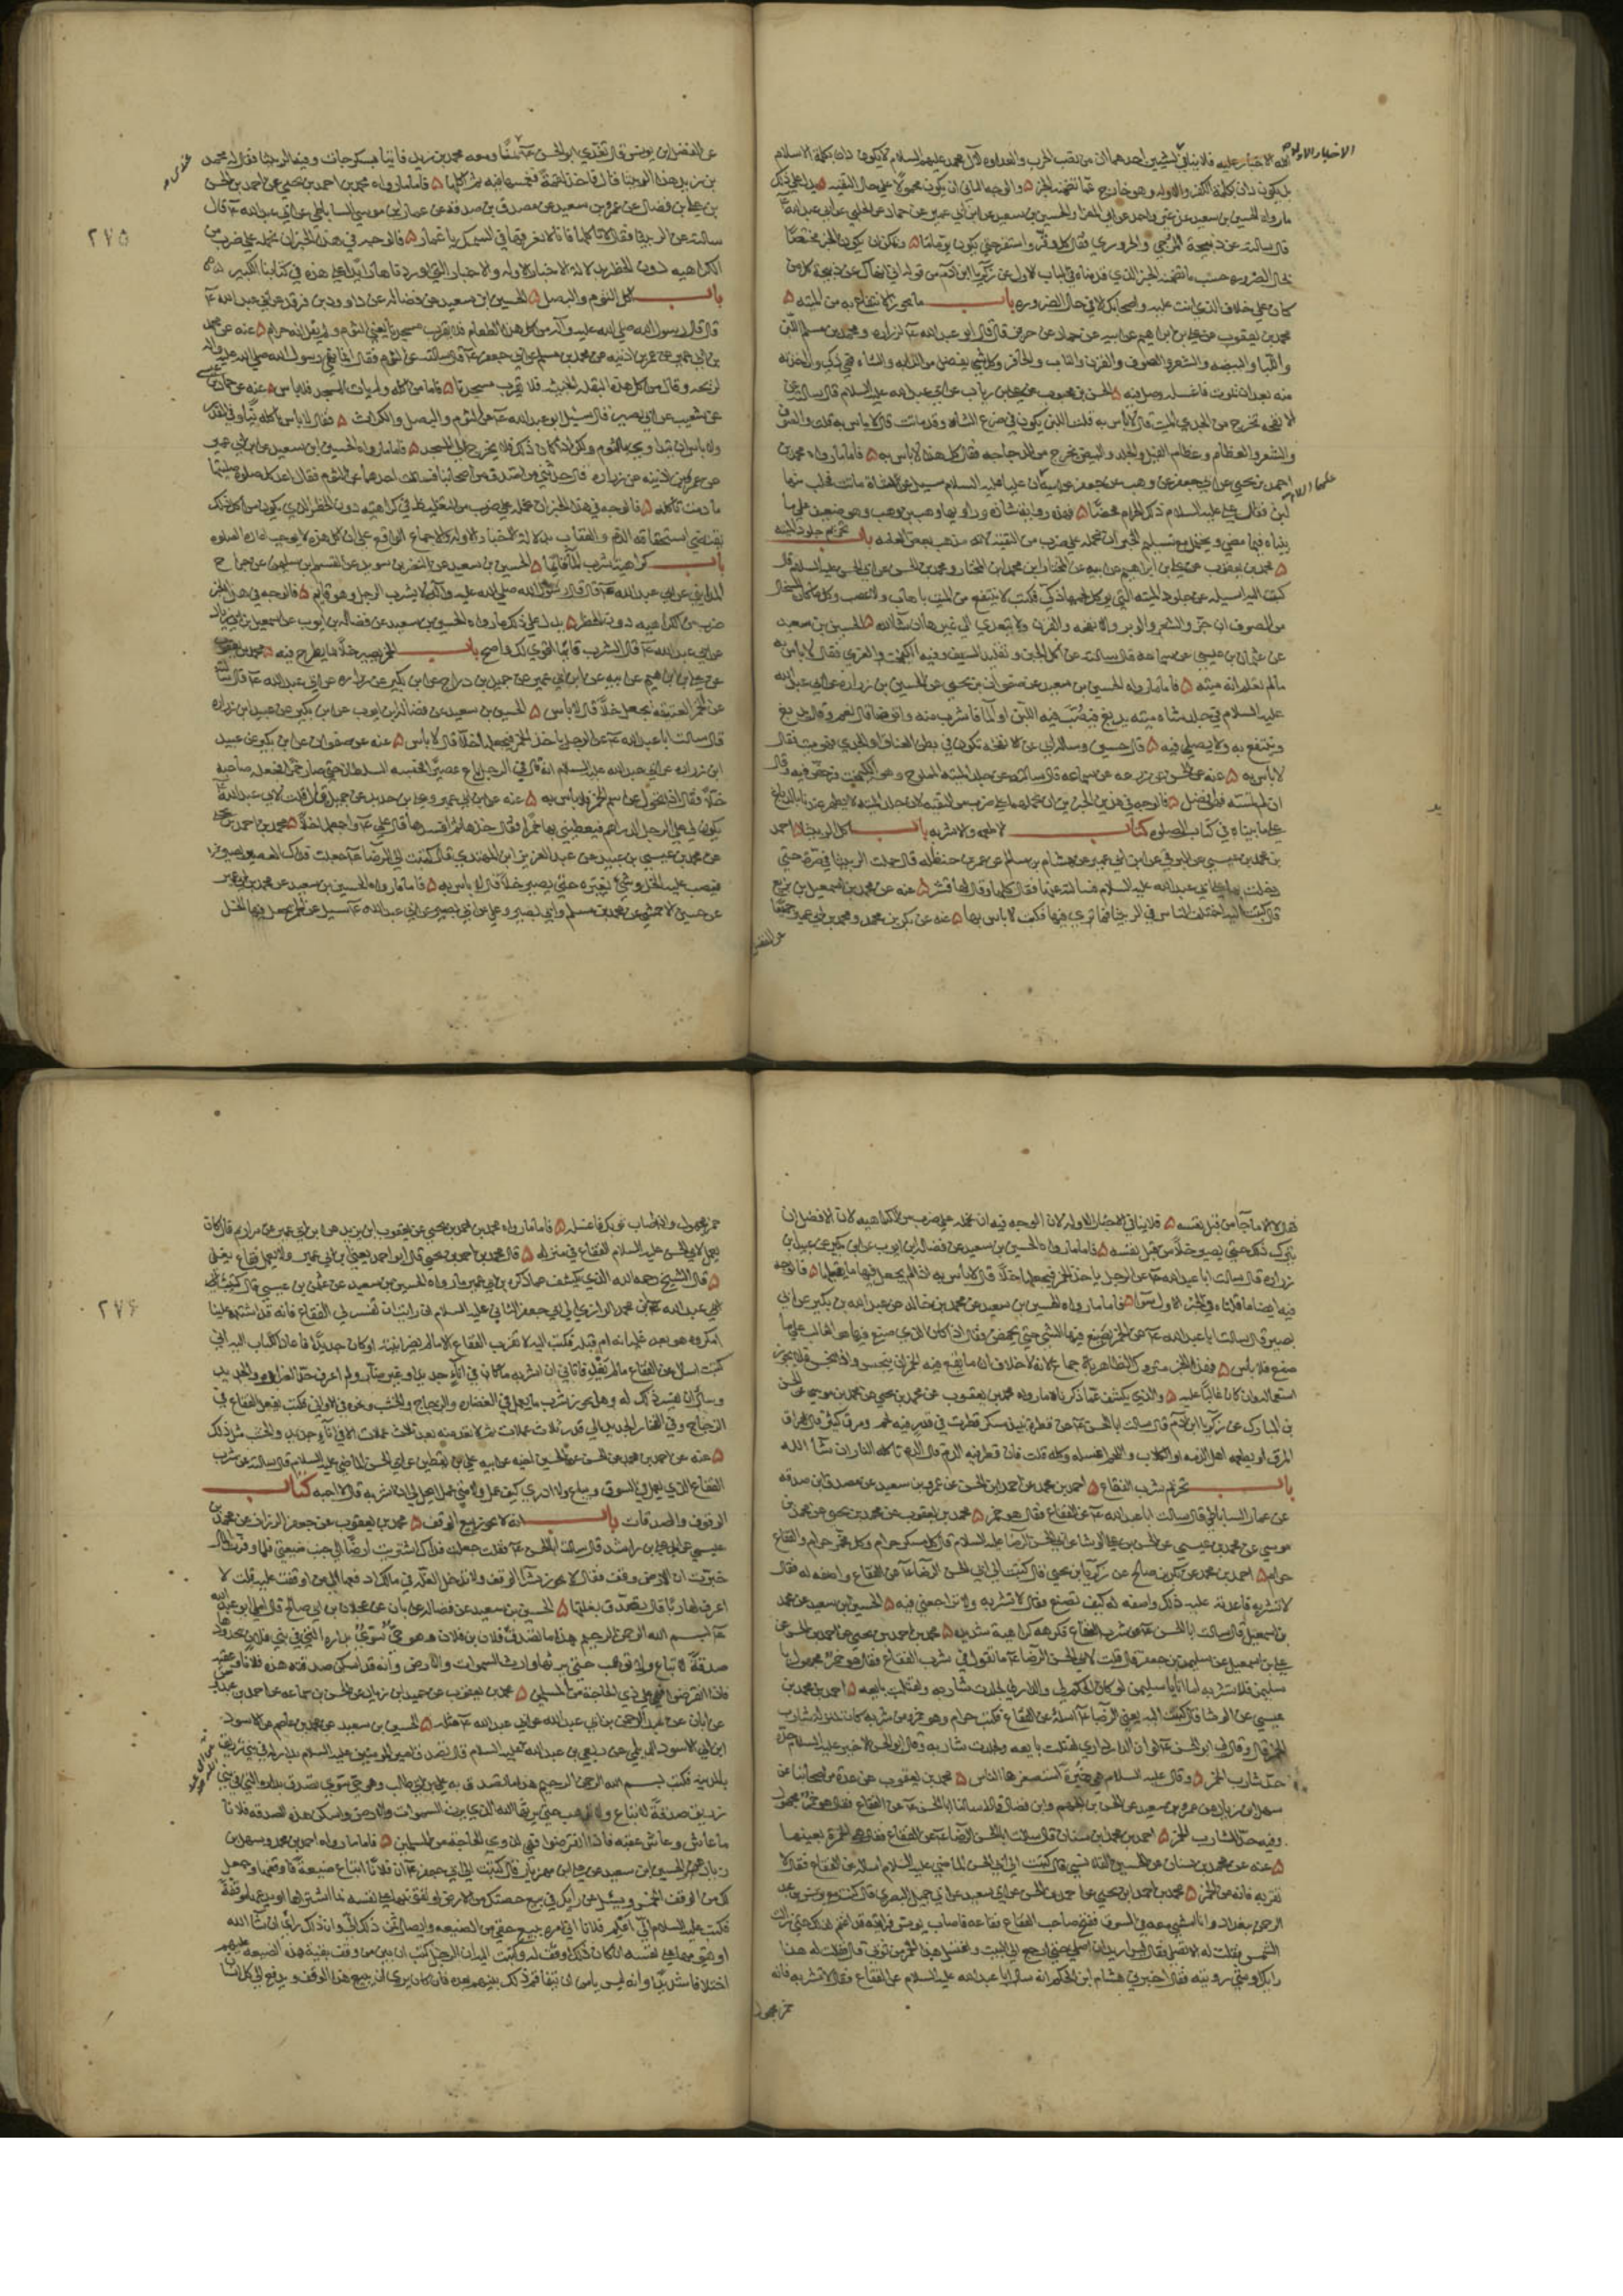 الله لا اختبار عليه فلا ينافي لشيئين احدهما ان من نصب الحرب والعداوه لآل محمد عليهم السلام لا يكون دان بكلمة الاسلام
بل يكون دان بكلمة الكفر والاوله وهو خارج عما تضمنه الخبر والوجه الثاني ان يكون محمولا على حال التقيه يدل على ذلك
ما رواه الحسين بن سعيد عن غير واحد عن ابي المغرا والحسين بن سعيد عن ابن ابي عمير عن حماد عن الحلبي عن ابي عبد الله ع
قال سالته عن ذبيحة المرجي والحروري فقال كل وقر واستقر حتى يكون يوما ما ويمكن ان يكون الخبر مختصا
بحال الضروره حسب ما تضمنه الخبر الذي قدمناه في الباب الاول عن زكريا ابن آدم من قوله اني انهاك عن ذبيحة كل من
كان على خلاف الذي انت عليه واصحابك الا في حال الضروره باب ما يجوز الانتفاع به من الميته
محمد بن يعقوب عن علي بن ابراهيم عن ابيه عن حماد عن حريز قال قال ابو عبد الله ع لزراره ومحمد بن مسلم اللبن
واللبا والبيضه والشعر والصوف والقرن والناب والحافر وكل شي يفصل من الدابه والشاه فهو ذكي وان اخذته
منه بعد ان تموت فاغسله وصل فيه الحسن بن محبوب عن علي بن رياب عن ابي عبد الله عليه السلام قال سالته عن
الانفحه تخرج من الجدي الميت قال لا باس به قلت اللبن يكون في ضرع الشاه وقد ماتت قال لا باس به قلت والصوف
والشعر والعظام وعظام الفيل والجلد والبيض يخرج من الدجاجه فقال كل هذا لا باس به فاما ما رواه محمد بن
احمد بن يحيى عن ابي جعفر عن وهب عن جعفر عن ابيه ان عليا عليه السلام سئل عن شاة ماتت فحلب منها
لبن فقال علي عليه السلام ذلك الحرام محضا فهذه رواية شاذه وراويها وهب بن وهب وهو ضعيف على ما
بيناه فيما مضى ويحتمل مع تسليم الخبر ان نحمله على ضرب من التقيه لانه مذهب بعض العامه باب تحريم جلود الميته
محمد بن يعقوب عن علي بن ابراهيم عن ابيه عن المختار ابن محمد ابن المختار ومحمد بن الحسن عن ابي الحسن عليه السلام قال
كتبت اليه اساله عن جلود الميته التي يوكل لحمها ذكي فكتب لا ينتفع من الميت باهاب ولا عصب وكلما كان من السخال
من الصوف ان جز والشعر والوبر والانفحه والقرن ولا يتعدى الى غيرها ان شا الله الحسين بن سعيد
عن عثمان بن عيسى عن سماعه قال سالته عن اكل الجبن وتقليد السيف وفيه الكيمخت والغري فقال لا باس به
مالم تعلم انه ميته فاما ما رواه الحسين بن سعيد عن صفوان بن يحيى عن الحسين بن زراره عن ابي عبد الله
عليه السلام في جلد شاه ميته يدبغ فيصب فيه اللبن او الما فاشرب منه واتوضا قال نعم وقال يدبغ
وينتفع به ولا يصلى فيه قال حسين وساله ابي عن الانفحه تكون في بطن العناق او الجدي وهو ميت فقال
لا باس به عنه عن الحسن عن زرعه عن سماعه قال سالته عن جلد الميته المملوح وهو الكيمخت فرخص فيه وقال
ان لم تمسه فهو افضل فالوجه في هذين الخبرين ان نحملهما على ضرب من التقيه لان جلد الميته لا يطهر عندنا بالدباغ
على ما بيناه في كتاب الصلوه كتاب الاطعمه والاشربه باب اكل الربيثا احمد
بن محمد بن عيسى عن البرقي عن ابن ابي عمير عن هشام بن سالم عن عمر بن حنظله قال حملت الربيثا في صره حتى
دخلت بها على ابي عبد الله عليه السلام فسالته عنها فقال كلها وقال لها قشر عنه عن محمد بن اسمعيل بن بزيع
قال كتبت اليه اختلف الناس في الربيثا فما تامرني فيها فكتب لا باس بها عنه عن بكر بن محمد ومحمد بن ابي عمير جميعا
عن الفضل
عن الفضل ابن يونس قال تغدى ابو الحسن ع عندنا ومعه محمد بن زيد فاتينا بسكرجات وفيها الربيثا فقال له محمد
بن زيد هذا الربيثا قال فاخذ لقمة فغمسها فيه ثم اكلها فاما ما رواه محمد بن احمد بن يحيى عن احمد بن الحسن
بن علي بن فضال عن عمرو بن سعيد عن مصدق بن صدقه عن عمار بن موسى الساباطي عن ابي عبد الله ع قال
سالته عن الربيثا فقال لا تاكلها فانا لا نعرفها في السمك يا عمار فالوجه في هذا الخبر ان نحمله على ضرب من
الكراهيه دون الحظر بدلالة الاخبار الاوله والاخبار التي اوردناها ايضا على هذه في كتابنا الكبير
باب اكل الثوم والبصل الحسين ابن سعيد عن فضاله عن داود بن فرقد عن ابي عبد الله ع
قال قال رسول الله صلى الله عليه وآله من اكل هذا الطعام فلا يقرب مسجدنا يعني الثوم ولم يقل انه حرام عنه عن محمد
بن ابي عمير عن عمر بن اذينه عن محمد بن مسلم عن ابي جعفر ع قال سالته عن الثوم فقال انما نهى رسول الله صلى الله عليه وآله
لريحه وقال من اكل هذه البقله الخبيثه فلا يقرب مسجدنا فاما من اكله ولم يات المسجد فلا باس عنه عن حماد
عن شعيب عن ابي بصير قال سئل ابو عبد الله ع عن الثوم والبصل والكراث فقال لا باس باكله نيا وفي القدر
ولا باس ان تداوى بالثوم ولكن اذا كان ذلك فلا يخرج الى المسجد فاما ما رواه الحسين ابن سعيد عن ابن ابي عمير
عن عمر بن اذينه عن زراره قال حدثني من اصدق من اصحابنا قال سالت احدهما عن الثوم فقال اعد كل صلوه صليتها
ما دمت تاكله فالوجه في هذا الخبر ان نحمله على ضرب من التغليظ في كراهيته دون الحظر الذي يكون من اكل ذلك
يقتضي استحقاقه الذم والعقاب بدلالة الاخبار الاوله والاجماع الواقع على ان اكل هذه لا يوجب اعادة الصلوه
باب كراهية شرب الماء قائما الحسين بن سعيد عن النضر بن سويد عن القسم ابن سليمان عن جراح
المدايني عن ابي عبد الله ع قال قال رسول الله صلى الله عليه وآله لا يشرب الرجل وهو قايم فالوجه في هذا الخبر
ضرب من الكراهيه دون الحظر يدل على ذلك ما رواه الحسين بن سعيد عن فضاله بن ايوب عن اسمعيل بن ابي زياد
عن ابي عبد الله ع قال الشرب قايما اقوى لك واصح باب الخمر يصير خلا بما يطرح فيه محمد بن يعقوب
عن علي بن ابراهيم عن ابيه عن ابن ابي عمير عن جميل بن دراج عن ابن بكير عن زراره عن ابي عبد الله ع قال سالته
عن الخمر العتيقه تجعل خلا قال لا باس الحسين بن سعيد عن فضاله ابن ايوب عن ابن بكير عن عبيد ابن زراره
قال سالت ابا عبد الله ع عن الرجل ياخذ الخمر فيجعلها خلا قال لا باس عنه عن صفوان عن ابن بكير عن عبيد
ابن زراره عن ابي عبد الله عليه السلام انه قال في الرجل باع عصيرا فحبسه السلطان حتى صار خمرا فجعله صاحبه
خلا فقال اذا تحول عن اسم الخمر فلا باس به عنه عن ابن ابي عمير وعلي بن حديد عن جميل قال قلت لابي عبد الله ع
يكون لي على الرجل الدراهم فيعطيني بها خمرا فقال خذها ثم افسدها قال علي ع واجعلها خلا محمد بن احمد بن يحيى
عن محمد بن عيسى بن عبيد عن عبد العزيز ابن المهتدي قال كتبت الى الرضا ع جعلت فداك العصير يصير خمرا
فيصب عليه الخل وشي يغيره حتى يصير خلا قال لا باس به فاما ما رواه الحسين بن سعيد عن محمد بن ابي عمير
عن حسين الاحمسي عن محمد بن مسلم وابي بصير وعلي عن ابي بصير عن ابي عبد الله ع سئل عن الخمر يجعل فيها الخل
٢٧٥
فقال لا الا ما جآ من قبل نفسه فلا ينافي الاخبار الاوله لان الوجه فيه ان نحمله على ضرب من الكراهيه لان الافضل ان
يترك ذلك حتى يصير خلا من قبل نفسه فاما ما رواه الحسين بن سعيد عن فضاله ابن ايوب عن ابن بكير عن عبيد بن
زراره قال سالت ابا عبد الله ع عن الرجل ياخذ الخمر فيجعلها خلا قال لا باس به اذا لم يجعل فيها ما يغلبها فالوجه
فيه ايضا ما قلناه في الخبر الاول سوا فاما ما رواه الحسين بن سعيد عن محمد بن خالد عن عبد الله بن بكير عن ابي
بصير قال سالت ابا عبد الله ع عن الخمر يصنع فيها الشي حتى يحمض فقال اذا كان الذي صنع فيها هو الغالب على ما
صنع فلا باس فهذا الخبر متروك الظاهر باجماع لانه لا خلاف ان ما يقع فيه الخمر ان ينجس واذا نجس فلا يجوز
استعماله وان كان غالبا عليه والذي يكشف عما ذكرناه ما رواه محمد بن يعقوب عن محمد بن يحيى عن محمد بن موسى عن الحسن
بن المبارك عن زكريا ابن آدم قال سالت ابا الحسن ع عن قطرة نبيذ مسكر قطرت في قدر فيه لحم ومرق كثير قال يهراق
المرق او يطعمه اهل الذمه او الكلاب واللحم اغسله وكله قلت فان قطر فيه الدم قال الدم تاكله النار ان شآ الله
باب تحريم شرب الفقاع احمد بن محمد عن احمد ابن الحسن عن عمرو بن سعيد عن مصدق ابن صدقه
عن عمار الساباطي قال سالت ابا عبد الله ع عن الفقاع فقال هو خمر محمد بن يعقوب عن محمد بن يحيى عن محمد بن
موسى عن محمد بن عيسى عن الحسن بن علي الوشا عن ابي الحسن الرضا عليه السلام قال كل مسكر حرام وكل مخمر حرام والفقاع
حرام احمد بن محمد عن بكر بن صالح عن زكريا ابن يحيى قال كتبت الى ابي الحسن الرضا ع عن الفقاع واصفه له فقال
لا تشربه فاعدت عليه ذلك واصفه له كيف تصنع فقال لا تشربه ولا تراجعني فيه الحسين ابن سعيد عن محمد
بن اسمعيل قال سالت ابا الحسن ع عن شرب الفقاع فكرهه كراهية شديده محمد بن احمد بن يحيى عن احمد بن الحسن عن
علي بن اسمعيل عن سليمان بن جعفر قال قلت لابي الحسن الرضا ع ما تقول في شرب الفقاع فقال هو خمر مجهول يا
سليمن فلا تشربه اما انا يا سليمن لو كان الحكم لي والدار لي لجلدت شاربه ولقتلت بايعه احمد بن محمد بن
عيسى عن الوشا قال كتبت اليه يعني الرضا ع اساله عن الفقاع فكتب حرام وهو خمر من شربه كان بمنزلة شارب
الخمر قال وقال لي ابو الحسن ع لو ان الدار داري لقتلت بايعه ولجلدت شاربه وقال ابو الحسن الاخير عليه السلام حده
حد شارب الخمر وقال عليه السلام هي خميرة استصغرها الناس محمد بن يعقوب عن عدة من اصحابنا عن
سهل ابن زياد عن عمرو بن سعيد عن الحسن بن الجهم وابن فضال قالا سالنا ابا الحسن ع عن الفقاع فقال هو خمر مجهول
وفيه حد شارب الخمر احمد بن محمد ابن سنان قال سالت ابا الحسن الرضا ع عن الفقاع فقال هو الخمرة بعينها
عنه عن محمد بن سنان عن الحسين القلانسي قال كتبت الى ابي الحسن الماضي عليه السلام اساله عن الفقاع فقال لا
تقربه فانه من الخمر محمد بن احمد ابن يحيى عن احمد بن الحسن عن ابي سعيد عن ابي جميل البصري قال كنت مع يونس بن عبد
الرحمن ببغداد وانا امشي معه في السوق ففتح صاحب الفقاع فقاعه فاصاب يونس فرايته قد اغتم لذلك حتى زالت
الشمس فقلت له الا تصلي فقال ليس اريد ان اصلي حتى ارجع الى البيت واغسل هذا الخمر من ثوبي قال فقلت له هذا
رايك او شي رويته فقال اخبرني هشام ابن الحكم انه سال ابا عبد الله عليه السلام عن الفقاع فقال لا تشربه فانه
خمر مجهول
خمر مجهول واذا اصاب ثوبك فاغسله فاما ما رواه محمد بن احمد بن يحيى عن يعقوب ابن يزيد عن ابن ابي عمير عن مرازم قال كان
يعمل لابي الحسن عليه السلام الفقاع في منزله قال محمد بن احمد بن يحيى قال ابو احمد يعني ابن ابي عمير ولا يعمل فقاع يغلي
قال الشيخ رحمه الله الذي يكشف عما ذكره ابن ابي عمير ما رواه الحسين بن سعيد عن عثمن بن عيسى قال كتب
عبد الله بن محمد الرازي الى ابي جعفر الثاني عليه السلام ان رايت ان تفسر لي الفقاع فانه قد اشتبه علينا
امكروه هو بعد غليانه ام قبله فكتب اليه لا تقرب الفقاع الا مالم يضر انيته او كان جديدا فاعاد الكتاب اليه اني
كتبت اسال عن الفقاع مالم يغل فاتاني ان اشربه ما كان في اناء جديد او غير ضار ولم اعرف حد الضراوه والجديد
وسال ان يفسر ذلك له وهل يجوز شرب ما يعمل في الغضاره والزجاج والخشب ونحوه من الاواني فكتب يفعل الفقاع في
الزجاج وفي الفخار الجديد الى قدر ثلاث عملات ثم لا تعد منه بعد ثلاث عملات الا في اناء جديد والخشب مثل ذلك
عنه عن احمد بن محمد عن الحسن عن الحسين اخيه عن ابيه علي بن يقطين عن ابي الحسن الماضي عليه السلام قال سالته عن شرب
الفقاع الذي يعمل في السوق ويباع ولا ادري كيف عمل ولا متى عمل ايحل لي ان اشربه قال لا احبه كتاب
الوقوف والصدقات باب انه لا يجوز بيع الوقف محمد بن يعقوب عن جعفر الرزاز عن محمد بن
عيسى عن ابي علي بن راشد قال سالت ابا الحسن ع قلت جعلت فداك اشتريت ارضا الى جنب ضيعتي فلما وفرت المال
خبرت ان الارض وقف فقال لا يجوز شرآ الوقف ولا تدخل الغلة في مالك ادفعها الى من اوقفت عليه قلت لا
اعرف لها ربا قال تصدق بغلتها الحسين بن سعيد عن فضاله عن ابان عن عجلان ابي صالح قال املى ابو عبد الله
ع بسم الله الرحمن الرحيم هذا ما تصدق فلان بن فلان وهو حي سوي بداره التي في بني فلان بحدودها
صدقة لا تباع ولا توهب حتى يرثها وارث السموات والارض وانه قد اسكن صدقته هذه فلانا وعقبه
فاذا انقرضوا فهي على ذي الحاجة من المسلمين محمد بن يعقوب عن حميد بن زياد عن الحسن بن سماعه عن احمد بن عديس
عن ابان عن عبد الرحمن بن ابي عبد الله عن ابي عبد الله ع مثله الحسين بن سعيد عن محمد بن عاصم عن الاسود
ابن ابي الاسود الدؤلي عن ربعي بن عبد الله ع عليه السلام قال تصدق امير المؤمنين عليه السلام بدار له في بني زريق
بالمدينه فكتب بسم الله الرحمن الرحيم هذا ما تصدق به علي بن ابي طالب وهو حي سوي تصدق بداره التي في بني
زريق صدقة لا تباع ولا توهب حتى يرثها الله الذي يرث السموات والارض واسكن هذه الصدقه فلانا
ما عاش وعاش عقبه فاذا انقرضوا فهي لذوي الحاجة من المسلمين فاما ما رواه احمد بن محمد وسهل بن
زياد عن الحسين ابن سعيد عن علي ابن مهزيار قال كتبت الى ابي جعفر ع ان فلانا ابتاع ضيعة فاوقفها وجعل
لك من الوقف الخمس ويسئل عن رايك في بيع حصتك من الارض او تقويمها على نفسه بما اشتراها او يدعها موقفة
فكتب عليه السلام الي اعلم فلانا اني آمره ببيع حقي من الضيعه وايصال ثمن ذلك الي وان ذلك رائي ان شآ الله
او يقومها على نفسه ان كان ذلك اوفق له وكتبت اليه ان الرجل كتب ان بين من وقف بقية هذه الضيعه عليهم
اختلافا شديدا وانه ليس يامن ان يتفاقم ذلك بينهم بعده فان كان يرى ان يبيع هذا الوقف ويدفع الى كل انسان
٢٧٦